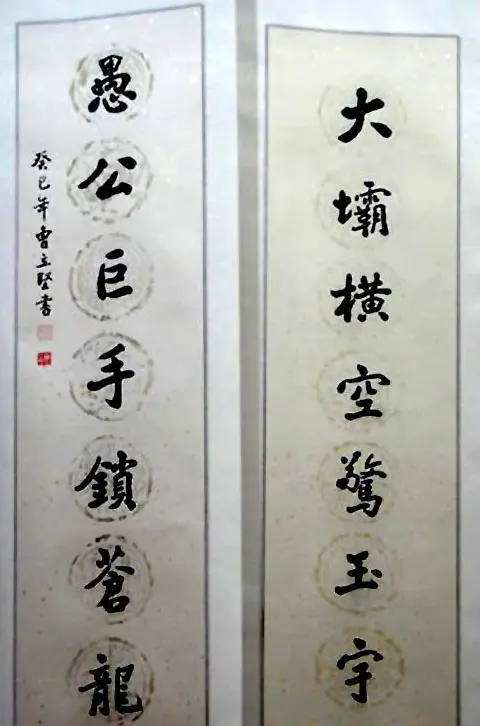 大壩橫空驚玉宇
愚公巨手鎖蒼龍
癸巳年曹立堅書